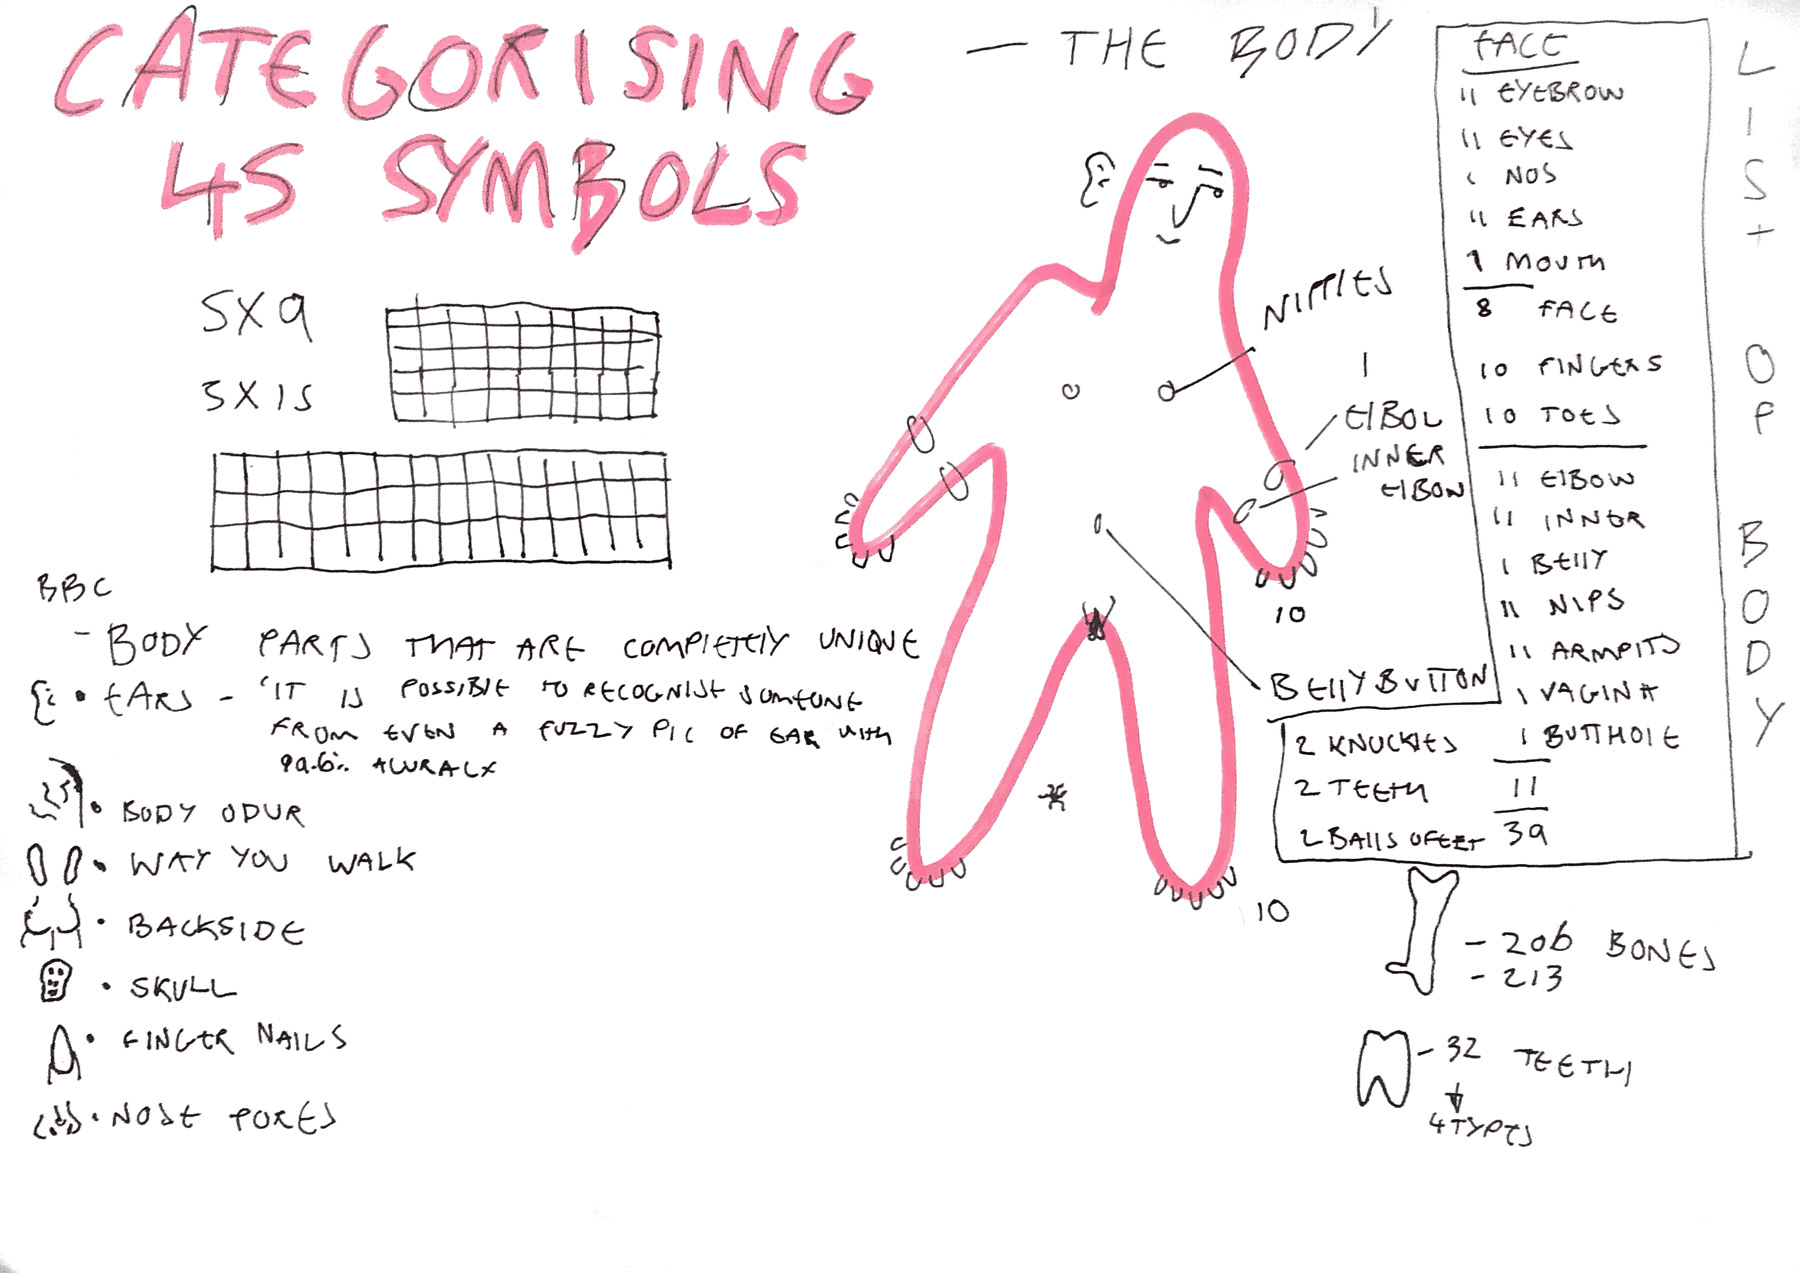 CATEGORISING
45 SYMBOLS
— THE BODY
5X9
3X15
BBC
- BODY PARTS THAT ARE COMPLETELY UNIQUE
• EARS - 'IT IS POSSIBLE TO RECOGNISE SOMEONE
FROM EVEN A FUZZY PIC OF EAR WITH
99.6%
• BODY ODUR
• WAY YOU WALK
• BACKSIDE
• SKULL
• FINGER NAILS
• NOSE PORES
NIPPLES
1
ELBOL
INNER
ELBOW
10
BELLY BUTTON
10
FACE
11 EYEBROW
11 EYES
1 NOS
11 EARS
1 MOUTH
8 FACE
10 FINGERS
10 TOES
11 ELBOW
11 INNER
1 BELLY
11 NIPS
11 ARMPITS
1 VAGINA
1 BUTTHOLE
11
39
2 KNUCKLES
2 TEETH
2 BALLS OFEET
LIST OF BODY
- 206 BONES
- 213
- 32 TEETH
4 TYPES